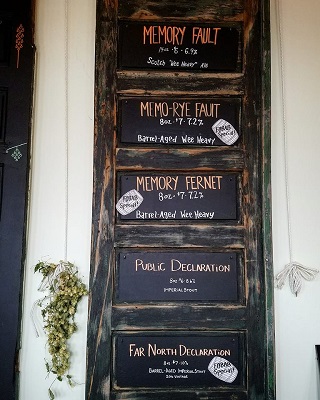 MEMORY FAULT
14oz · $6 · 6.9%
Scotch "Wee Heavy" Ale
MEMO-RYE FAULT
8oz · $7 · 7.2%
Barrel-Aged Wee Heavy
FEBREW Special!
MEMORY FERNET
8oz · $7 · 7.2%
Barrel-Aged Wee Heavy
Special!
PUBLIC DECLARATION
8oz $6 8.6%
IMPERIAL STOUT
FAR NORTH DECLARATION
8oz $7 · 10%
BARREL-AGED IMPERIAL STOUT
2016 VINTAGE
Special!